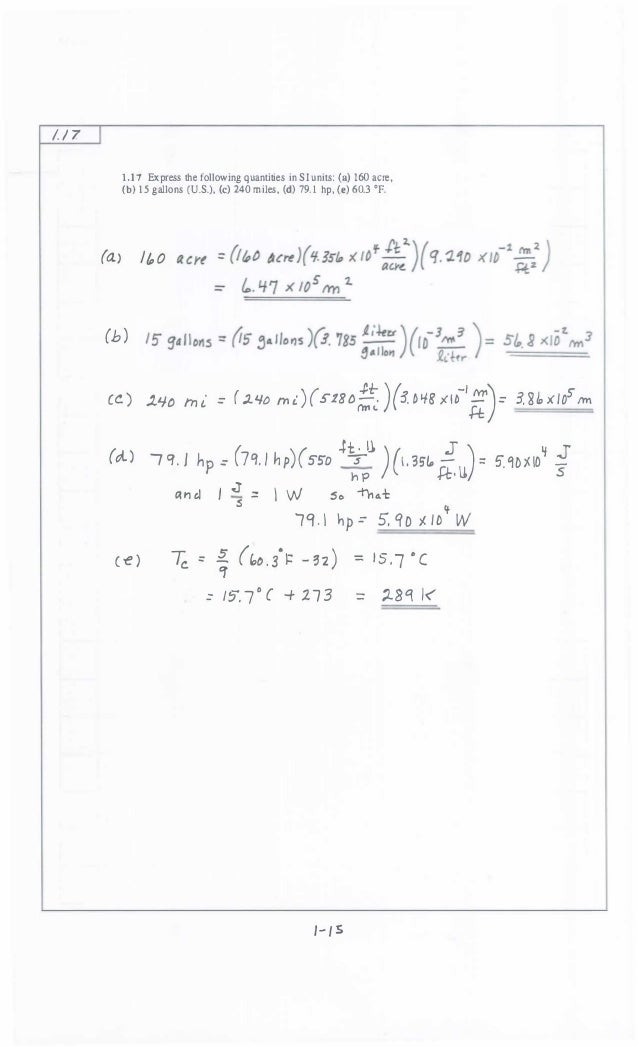 1.17
1.17 Express the following quantities in SI units: (a) 160 acre,
(b) 15 gallons (U.S.), (c) 240 miles, (d) 79.1 hp, (e) 60.3 °F.
(a) 160 acre = (160 acre)(4.356 x 10⁴ ft²/acre)(9.290 x 10⁻² m²/ft²)
= 6.47 x 10⁵ m²
(b) 15 gallons = (15 gallons)(3.785 liters/gallon)(10⁻³ m³/liter) = 56.8 x 10⁻² m³
(c) 240 mi = (240 mi)(5280 ft/mi.)(3.048 x 10⁻¹ m/ft) = 3.86 x 10⁵ m
(d) 79.1 hp = (79.1 hp)(550 ft·lb/s/hp)(1.356 J/ft·lb) = 5.90 x 10⁴ J/s
and 1 J/s = 1 W so that
79.1 hp = 5.90 x 10⁴ W
(e) Tc = 5/9 (60.3°F - 32) = 15.7 °C
= 15.7°C + 273 = 289 K
1-15